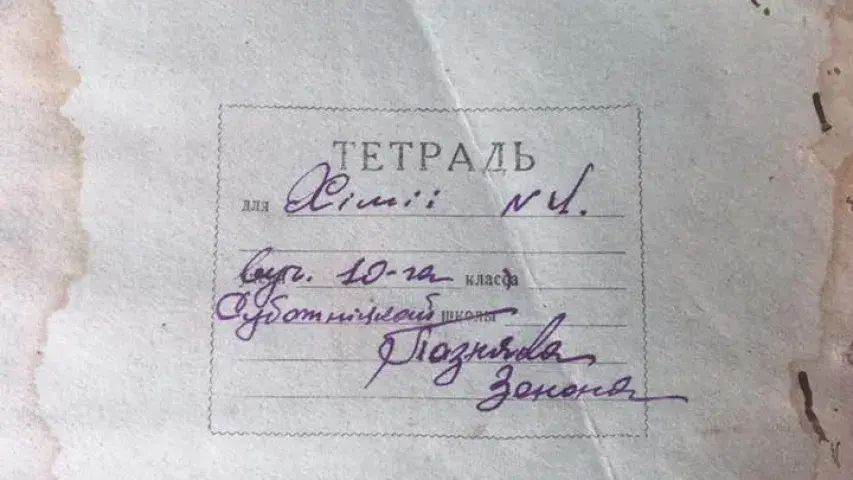 ТЕТРАДЬ
для Хіміі №4.
вуч. 10-га класса
Суботніцкай школы
Пазняка
Зенона